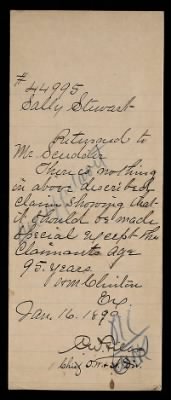 #44995
Sally Stewart
Returned to
Mr. Scudder
There is nothing
in above described
claim showing that
it should be made
special except the
Claimants age
95. years
Clinton
Ex.
Jan. 16. 1899
Chief